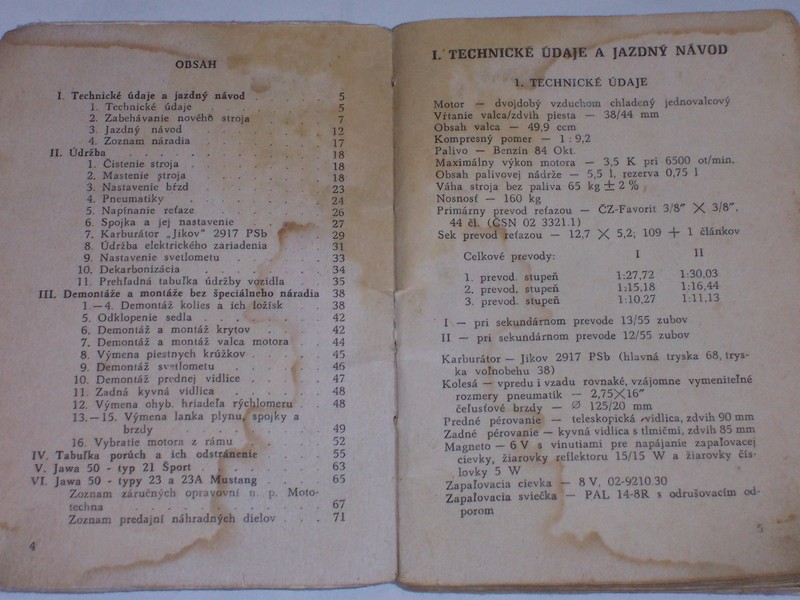 OBSAH
I. Technické údaje a jazdný návod . . . . 5
1. Technické údaje . . . . . . 5
2. Zabehávanie nového stroja . . . . 7
3. Jazdný návod . . . . . . . 12
4. Zoznam náradia . . . . . . 17
II. Údržba . . . . . . . . . 18
1. Čistenie stroja . . . . . . . 18
2. Mastenie stroja . . . . . . . 18
3. Nastavenie bŕzd . . . . . . 23
4. Pneumatiky . . . . . . . 24
5. Napínanie reťaze . . . . . . 26
6. Spojka a jej nastavenie . . . . . 27
7. Karburátor „Jikov" 2917 PSb . . . . 29
8. Údržba elektrického zariadenia . . . 31
9. Nastavenie svetlometu . . . . . 33
10. Dekarbonizácia . . . . . . 34
11. Prehľadná tabuľka údržby vozidla . . 35
III. Demontáže a montáže bez špeciálneho náradia 38
1.—4. Demontáž kolies a ich ložísk . . . 38
5. Odklopenie sedla . . . . . . 42
6. Demontáž a montáž krytov . . . . 42
7. Demontáž a montáž valca motora . . 44
8. Výmena piestnych krúžkov . . . . 45
9. Demontáž svetlometu . . . . . 46
10. Demontáž prednej vidlice . . . . 47
11. Zadná kyvná vidlica . . . . . 48
12. Výmena ohyb. hriadeľa rýchlomeru . . 48
13.—15. Výmena lanka plynu, spojky a
brzdy . . . . . . . . 49
16. Vybratie motora z rámu . . . . 52
IV. Tabuľka porúch a ich odstránenie . . . 55
V. Jawa 50 - typ 21 Šport . . . . . 63
VI. Jawa 50 - typy 23 a 23A Mustang . . . 65
Zoznam záručných opravovní n. p. Moto-
techna . . . . . . . . . 67
Zoznam predajní náhradných dielov . . . 71
4
I. TECHNICKÉ ÚDAJE A JAZDNÝ NÁVOD
1. TECHNICKÉ ÚDAJE
Motor — dvojdobý vzduchom chladený jednovalcový
Vŕtanie valca/zdvih piesta — 38/44 mm
Obsah valca — 49,9 ccm
Kompresný pomer — 1 : 9,2
Palivo — Benzín 84 Okt.
Maximálny výkon motora — 3,5 K pri 6500 ot/min.
Obsah palivovej nádrže — 5,5 l, rezerva 0,75 l
Váha stroja bez paliva 65 kg ± 2 %
Nosnosť — 160 kg
Primárny prevod reťazou — ČZ-Favorit 3/8" × 3/8",
44 čl. (ČSN 02 3321.1)
Sek prevod reťazou — 12,7 × 5,2; 109 + 1 článkov
Celkové prevody: I II
1. prevod. stupeň 1:27,72 1:30,03
2. prevod. stupeň 1:15,18 1:16,44
3. prevod. stupeň 1:10,27 1:11,13
I — pri sekundárnom prevode 13/55 zubov
II — pri sekundárnom prevode 12/55 zubov
Karburátor — Jikov 2917 PSb (hlavná tryska 68, trys-
ka voľnobehu 38)
Kolesá — vpredu i vzadu rovnaké, vzájomne vymeniteľné
rozmery pneumatik — 2,75×16"
čeľusťové brzdy — ∅ 125/20 mm
Predné pérovanie — teleskopická vidlica, zdvih 90 mm
Zadné pérovanie — kyvná vidlica s tlmičmi, zdvih 85 mm
Magneto — 6 V s vinutiami pre napájanie zapaľovacej
cievky, žiarovky reflektoru 15/15 W a žiarovky čís-
lovky 5 W
Zapaľovacia cievka — 8 V, 02-9210.30
Zapaľovacia sviečka — PAL 14-8R s odrušovacím od-
porom
5